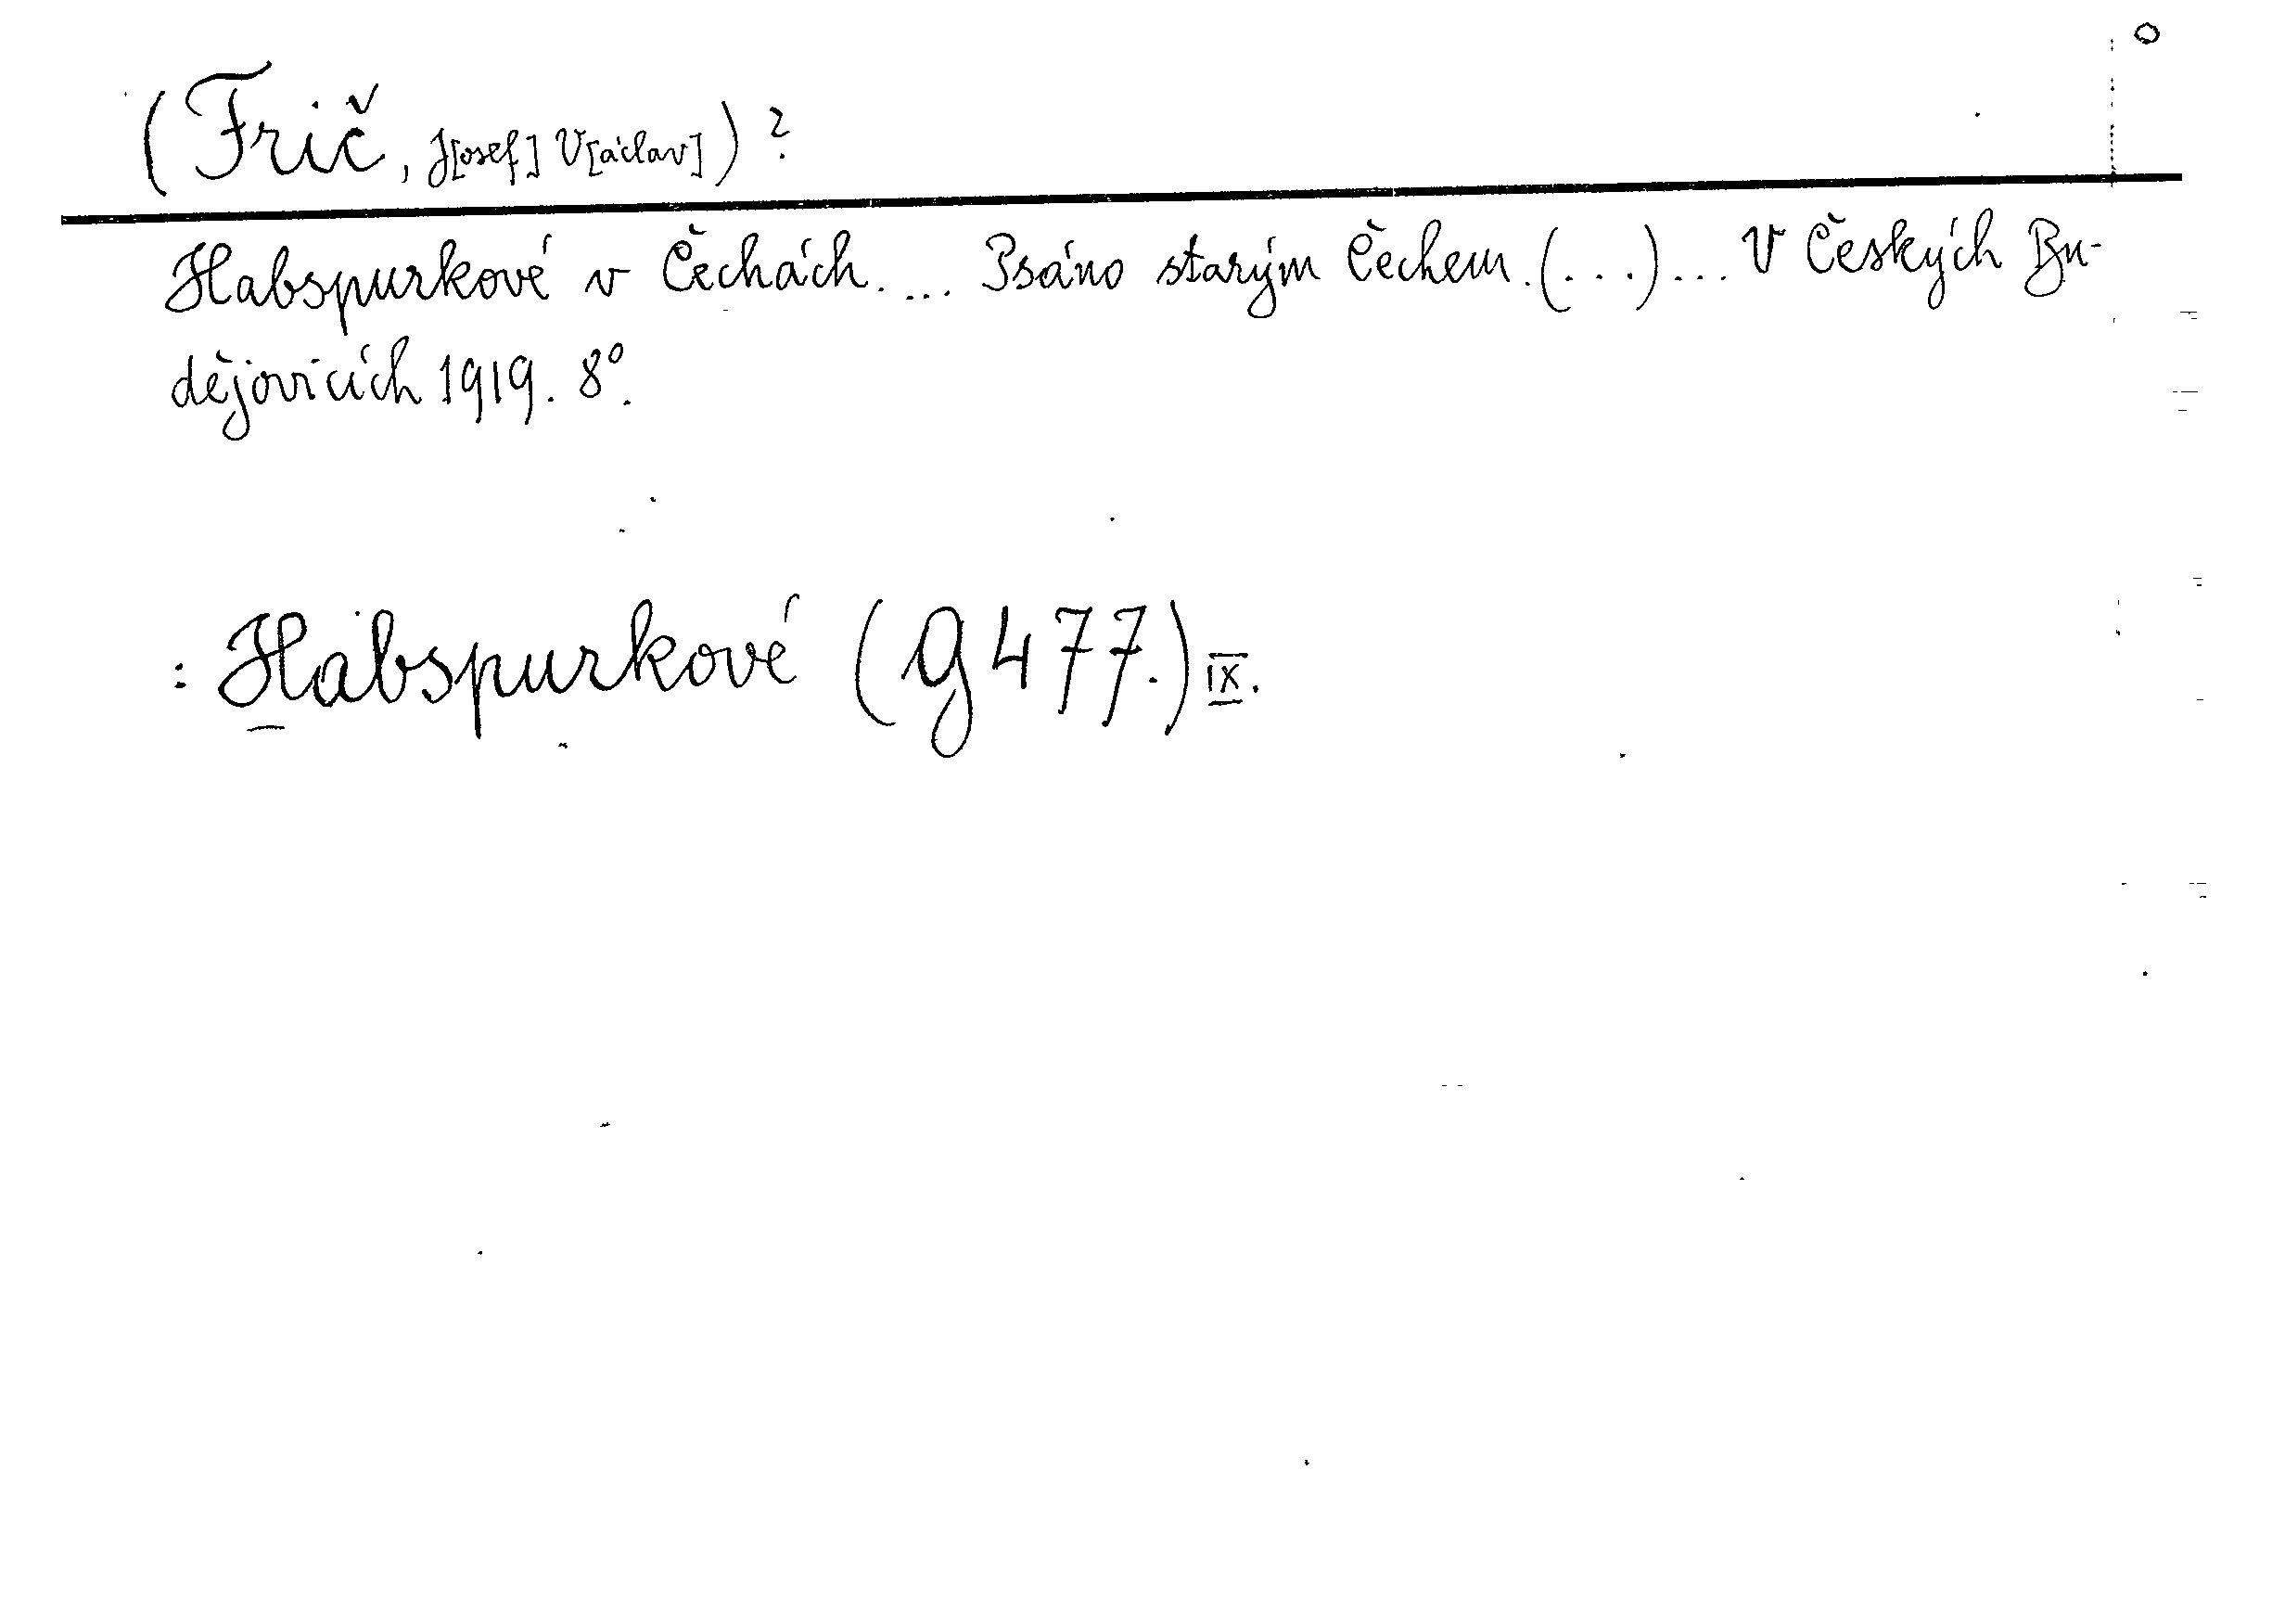 (Frič, J[osef] V[áclav])?
Habspurkové v Čechách. ... Psáno starým Čechem. (...)... V Českých Bu-
dějovicích 1919. 8°.
: Habspurkové (g 477.) IX.